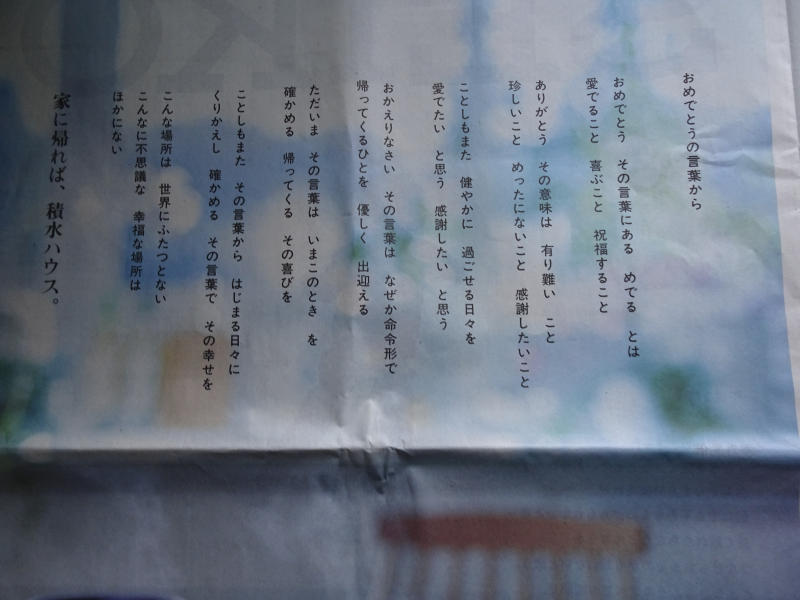 おめでとうの言葉から
おめでとう　その言葉にある　めでる　とは
愛でること　喜ぶこと　祝福すること
ありがとう　その意味は　有り難い　こと
珍しいこと　めったにないこと　感謝したいこと
ことしもまた　健やかに　過ごせる日々を
愛でたい　と思う　感謝したい　と思う
おかえりなさい　その言葉は　なぜか命令形で
帰ってくるひとを　優しく　出迎える
ただいま　その言葉は　いまこのとき　を
確かめる　帰ってくる　その喜びを
ことしもまた　その言葉から　はじまる日々に
くりかえし　確かめる　その言葉で　その幸せを
こんな場所は　世界にふたつとない
こんなに不思議な　幸福な場所は
ほかにない
家に帰れば、積水ハウス。